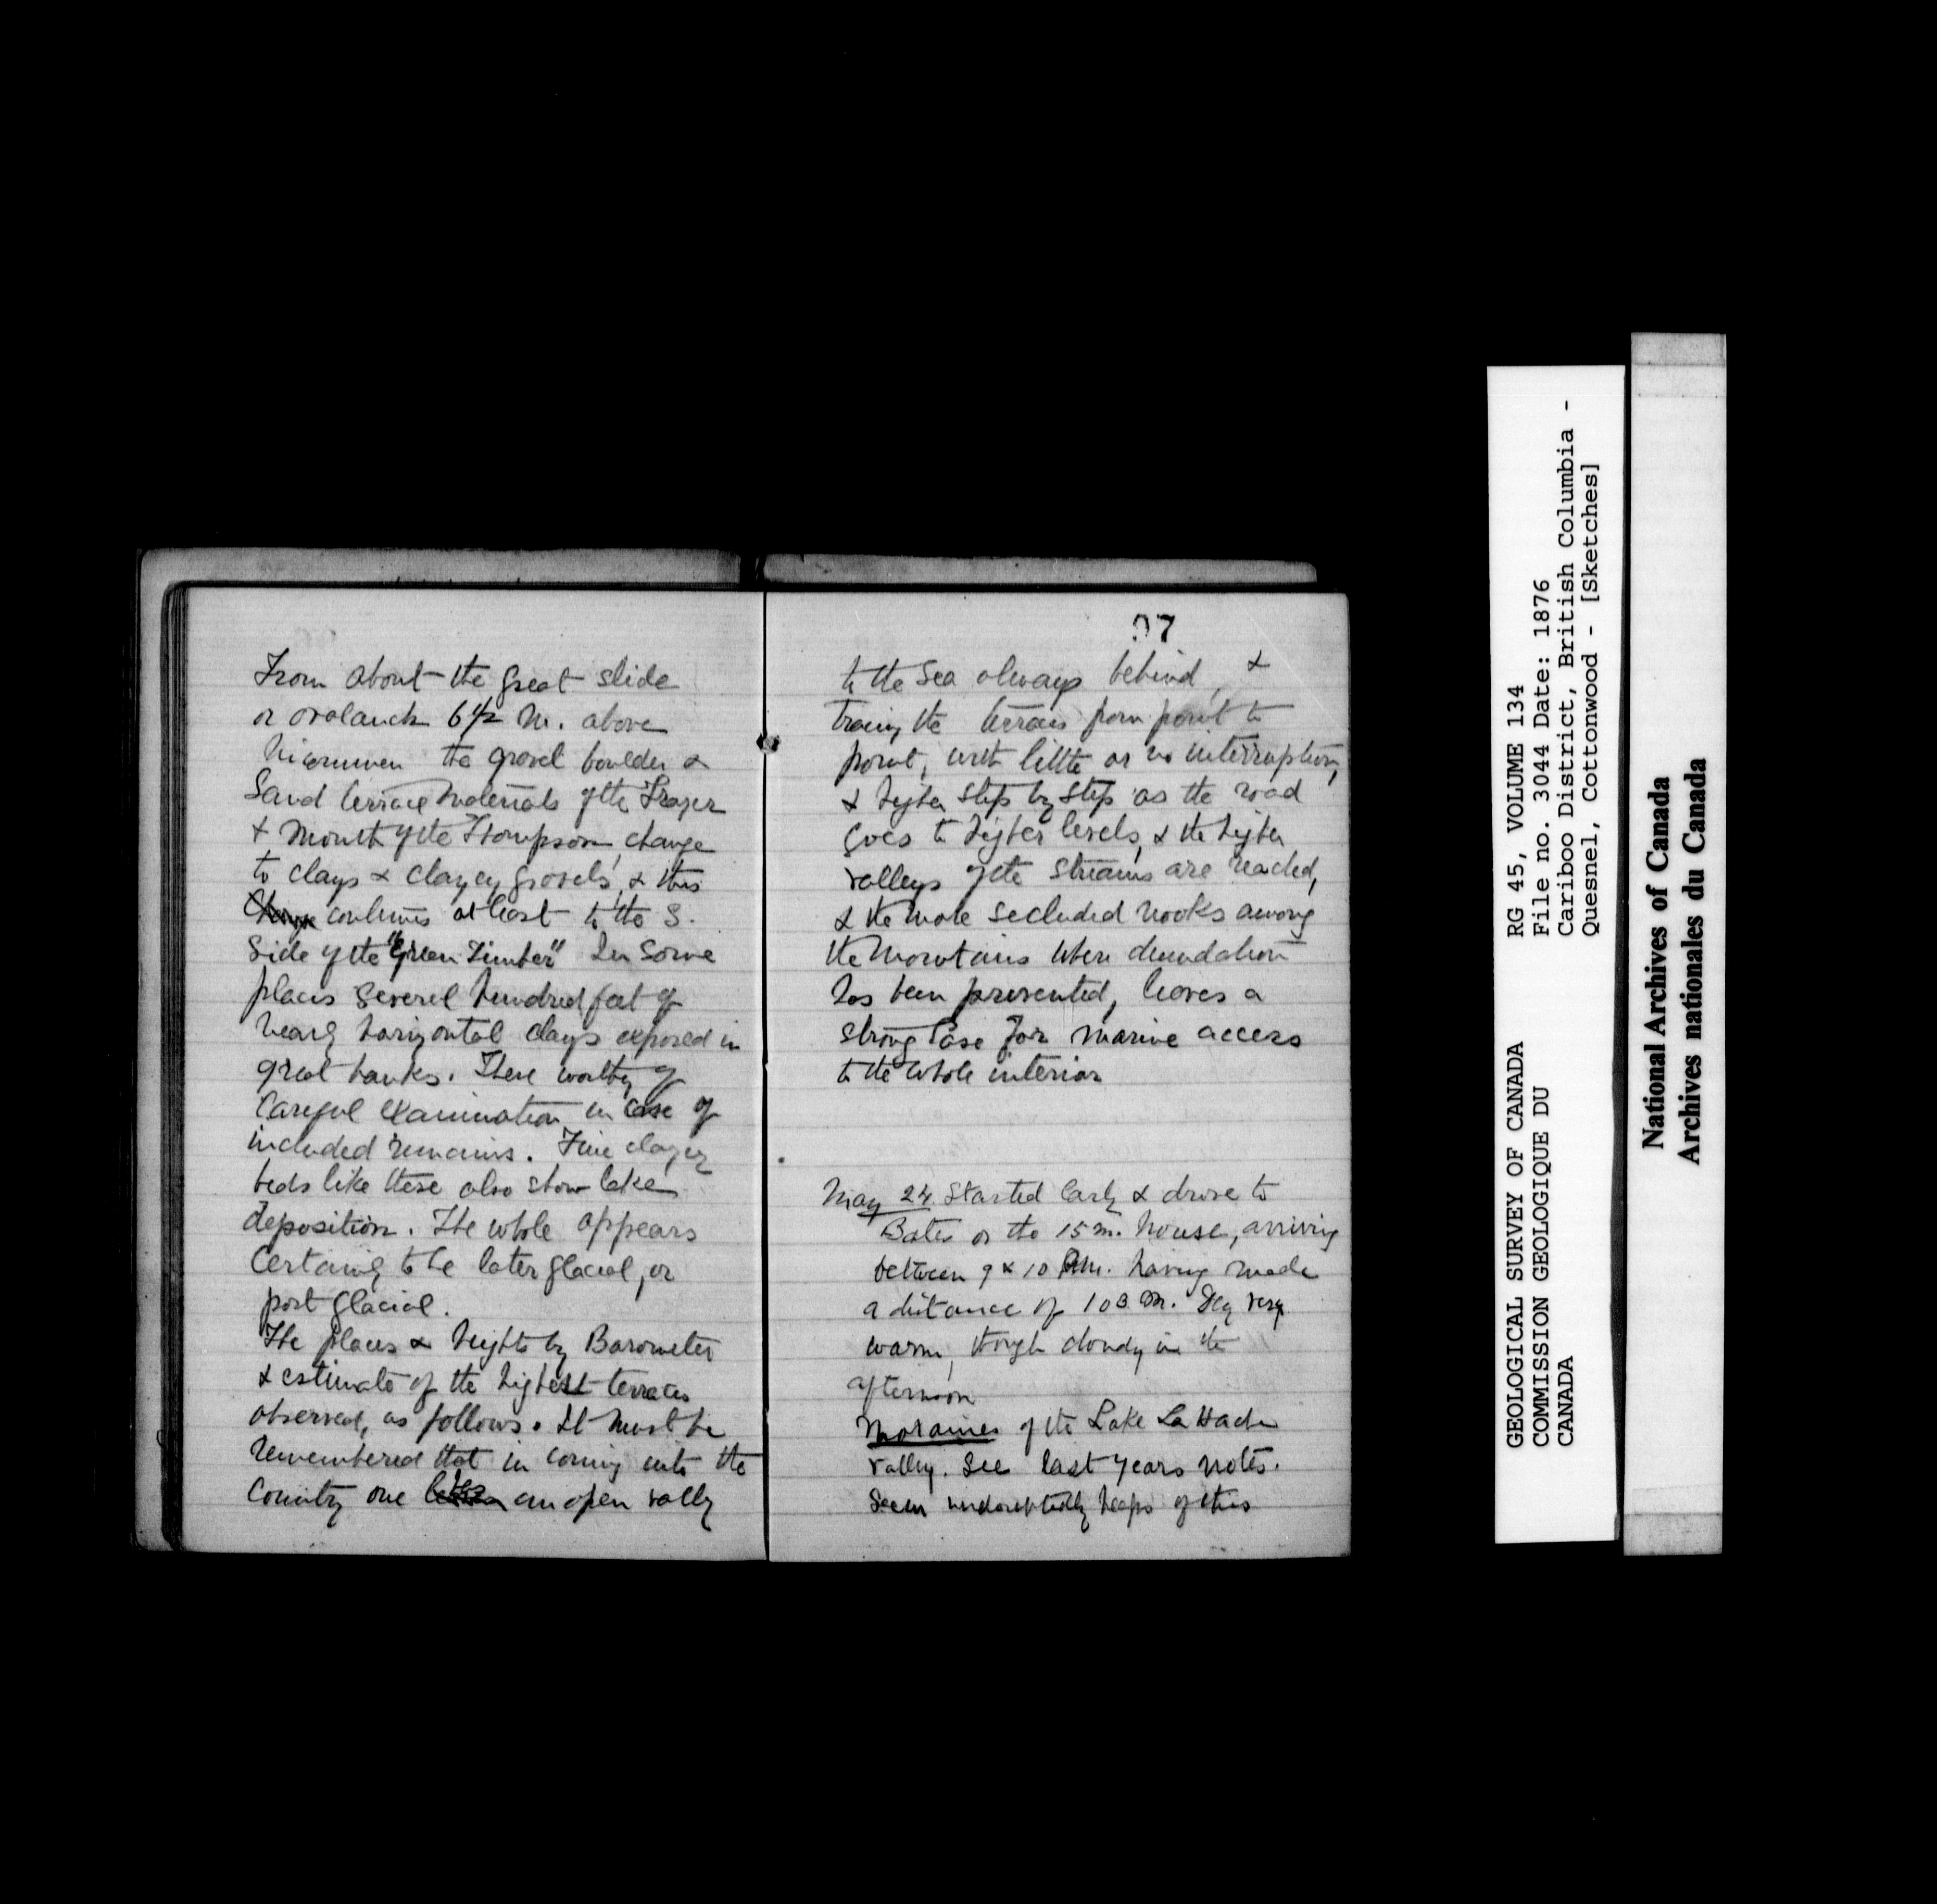 From about the great slide
or avalanch 6 1/2 m. above
Nicommen the gravel boulder &
Sand terrace materials of the Frazer
& mouth of the Thompson, change
to clays & clayey gravels, & this
continues at least to the S.
Side of the "Green Timber" In some
places several hundred feet of
nearly horizontal clays exposed in
great banks. These worthy of
Careful examination in case of
included remains. Fine clayey
beds like these also show lake
deposition. The whole appears
Certainly to be later glacial, or
post glacial.
The places & heights by Barometer
& estimate of the highest terraces
observed, as follows. It must be
remembered that in coming into the
Country one an open vally
97
to the Sea always behind, &
tracing the terraces from point to
point, with little or no interruption,
& higher step by step as the road
goes to higher levels, & the higher
valleys of the streams are reached,
& the more secluded nooks among
the mountains where denudation
has been prevented, leaves a
strong case for marine access
to the whole interior
May 24. Started early & drove to
Bates or the 15 m. house, arriving
between 9 & 10 P.M. having made
a distance of 103 m. Day very
warm, though cloudy in the
afternoon
Moraines of the Lake La Hache
valley. See last years notes.
Seem undoubtedly heaps of this
GEOLOGICAL SURVEY OF CANADA
COMMISSION GEOLOGIQUE DU
CANADA
RG 45, VOLUME 134
File no. 3044 Date: 1876
Cariboo District, British Columbia -
Quesnel, Cottonwood - [Sketches]
National Archives of Canada
Archives nationales du Canada